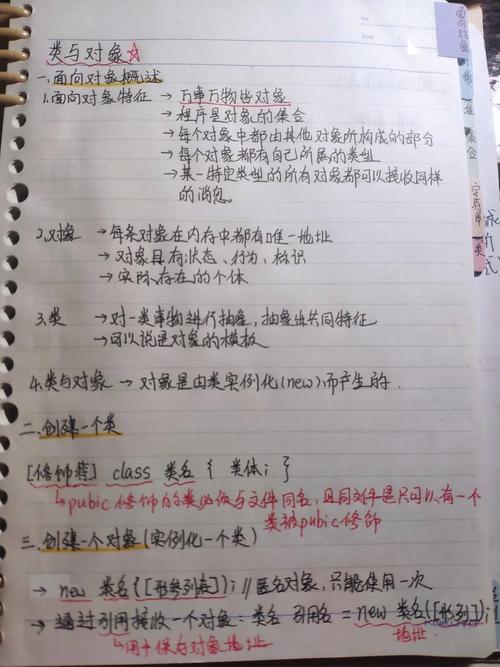 类与对象☆
一、面向对象概述
1.面向对象特征 → 万事万物皆对象
→ 程序是对象的集合
→ 每个对象中都由其他对象所构成的部分
→ 每个对象都有自己所属的类型
→ 某一特定类型的所有对象都可以接收同样
的消息。
2.对象 → 每条对象在内存中都有唯一地址
→ 对象具有状态、行为、标识
→ 实际存在的个体
3.类 → 对一类事物进行抽象,抽象出共同特征
→ 可以说是对象的模板
4.类与对象 → 对象是由类实例化(new)而产生的.
二、创建一个类
[修饰符] class 类名 { 类体; }
↳pubic修饰的类必须与文件同名,且同文件是只可以有一个
类被pubic修饰
三、创建一个对象(实例化一个类)
→ new 类名([形参列表]); // 匿名对象,只能使用一次
→ 通过引用接收一个对象: 类名 引用名 = new 类名([形列]);
↳用于保存对象地址
地址.
No.
Date
面向对象
集合
字符串
类